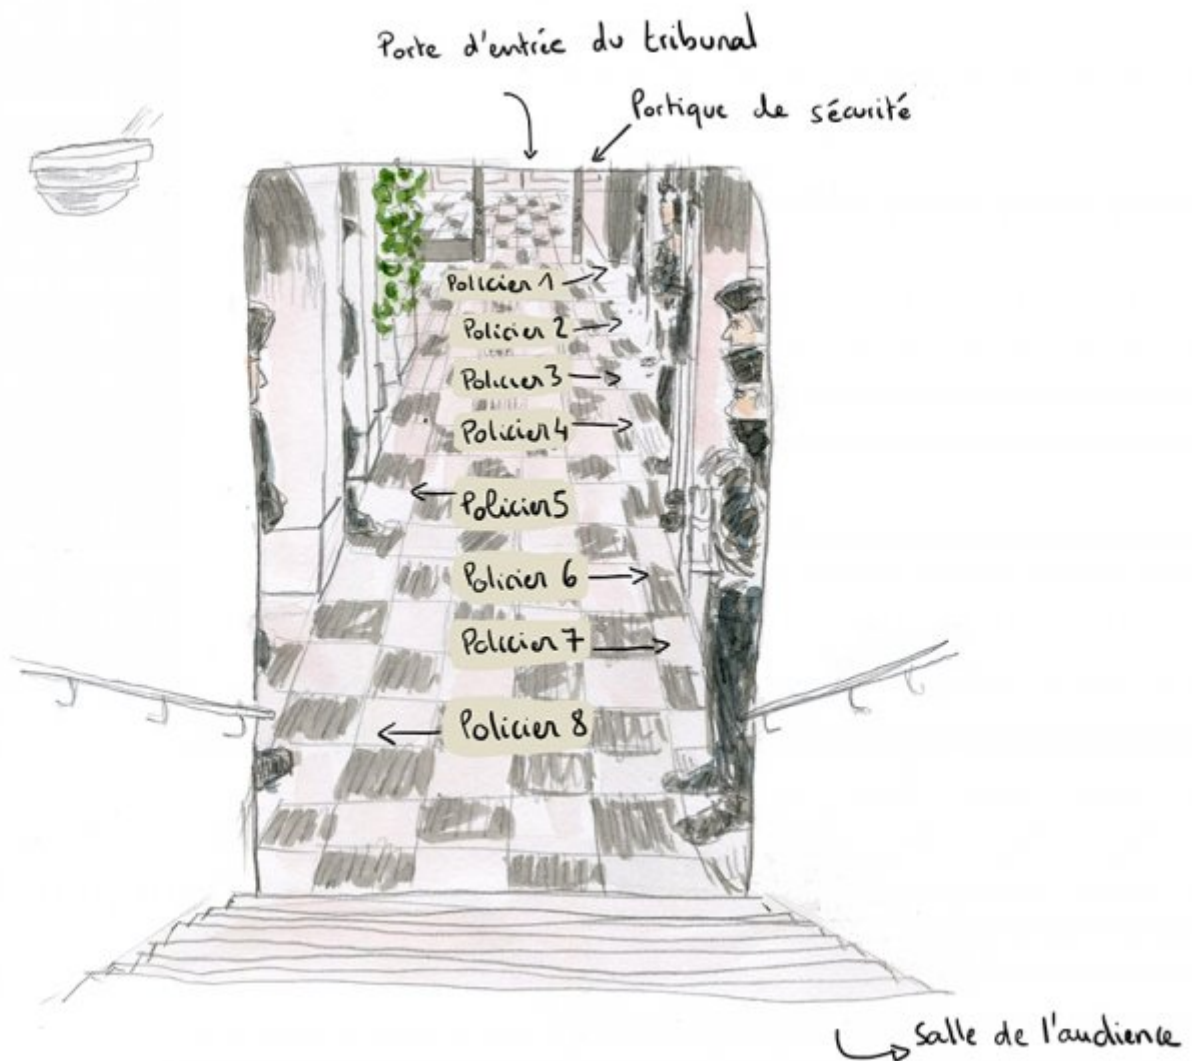 Porte d'entrée du tribunal
Portique de sécurité
Policier 1
Policier 2
Policier 3
Policier 4
Policier 5
Policier 6
Policier 7
Policier 8
Salle de l'audience